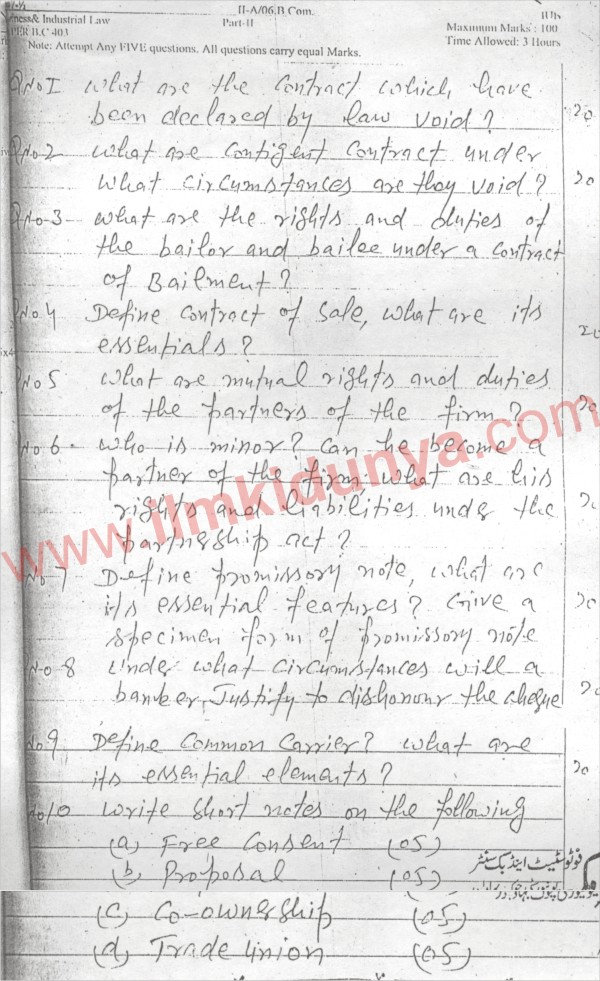 II-A/06.B.Com.
ness & Industrial Law
Part-II
PER B.C 403
Maximum Marks : 100
Time Allowed: 3 Hours
Note: Attempt Any FIVE questions. All questions carry equal Marks.
QNo I What are the contract which have
been declared by law void? 20
QNo-2 What are contigent contract under
what circumstances are they void? 20
QNo-3- What are the rights and duties of
the bailor and bailee under a contract
of Bailment?
QNo4 Define contract of sale, what are its
essentials? 20
QNo5 What are mutual rights and duties
of the partners of the firm? 20
No 6- Who is minor? Can he become a
partner of the firm, what are his
rights and liabilities under the
partnership act? 20
No-7 Define promissory note, what are
its essential features? Give a
specimen form of promissory note 20
No-8 Under what circumstances will a
banker, Justify to dishonour the cheque 20
No9 Define Common Carrier? What are
its essential elements? 20
No10 Write short notes on the following
(a) Free Consent (05)
(b) Proposal (05)
فوٹوسٹیٹ اینڈ بک سنٹر
(c) Co-ownership (05)
(d) Trade Union (05)
www.ilmkidunya.com